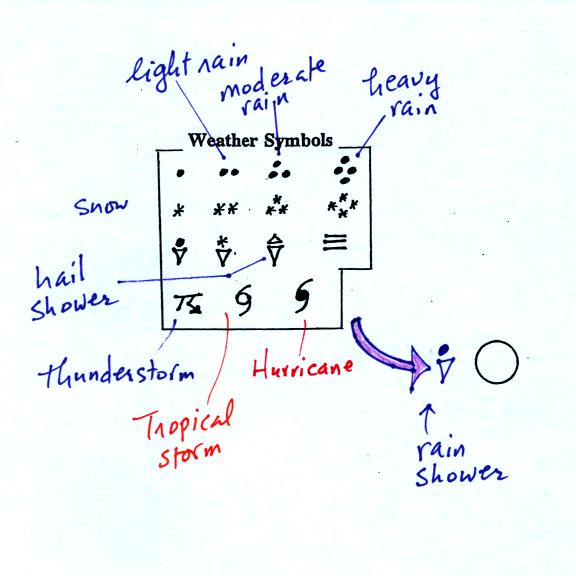 light rain
moderate
rain
heavy
rain
Weather Symbols
snow
hail
shower
thunderstorm
Hurricane
Tropical
storm
rain
shower